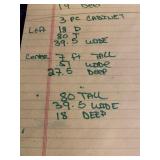 19 DEEP
3 PC CABINET
Left 18 D
80 T
39.5 WIDE
Center 7 ft TALL
WIDE
27.5 DEEP
80 TALL
39.5 WIDE
18 DEEP